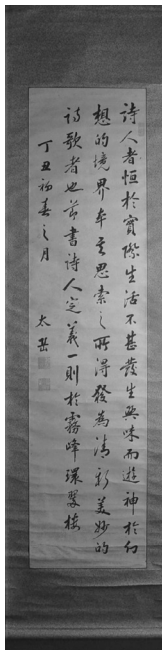 詩人者恒於實際生活不甚發生興味而遊神於幻
想的境界本其思索之所得發為清新美妙的
詩歌者也節書詩人定義一則於霧峰環翠樓
丁丑初春之月 太岳